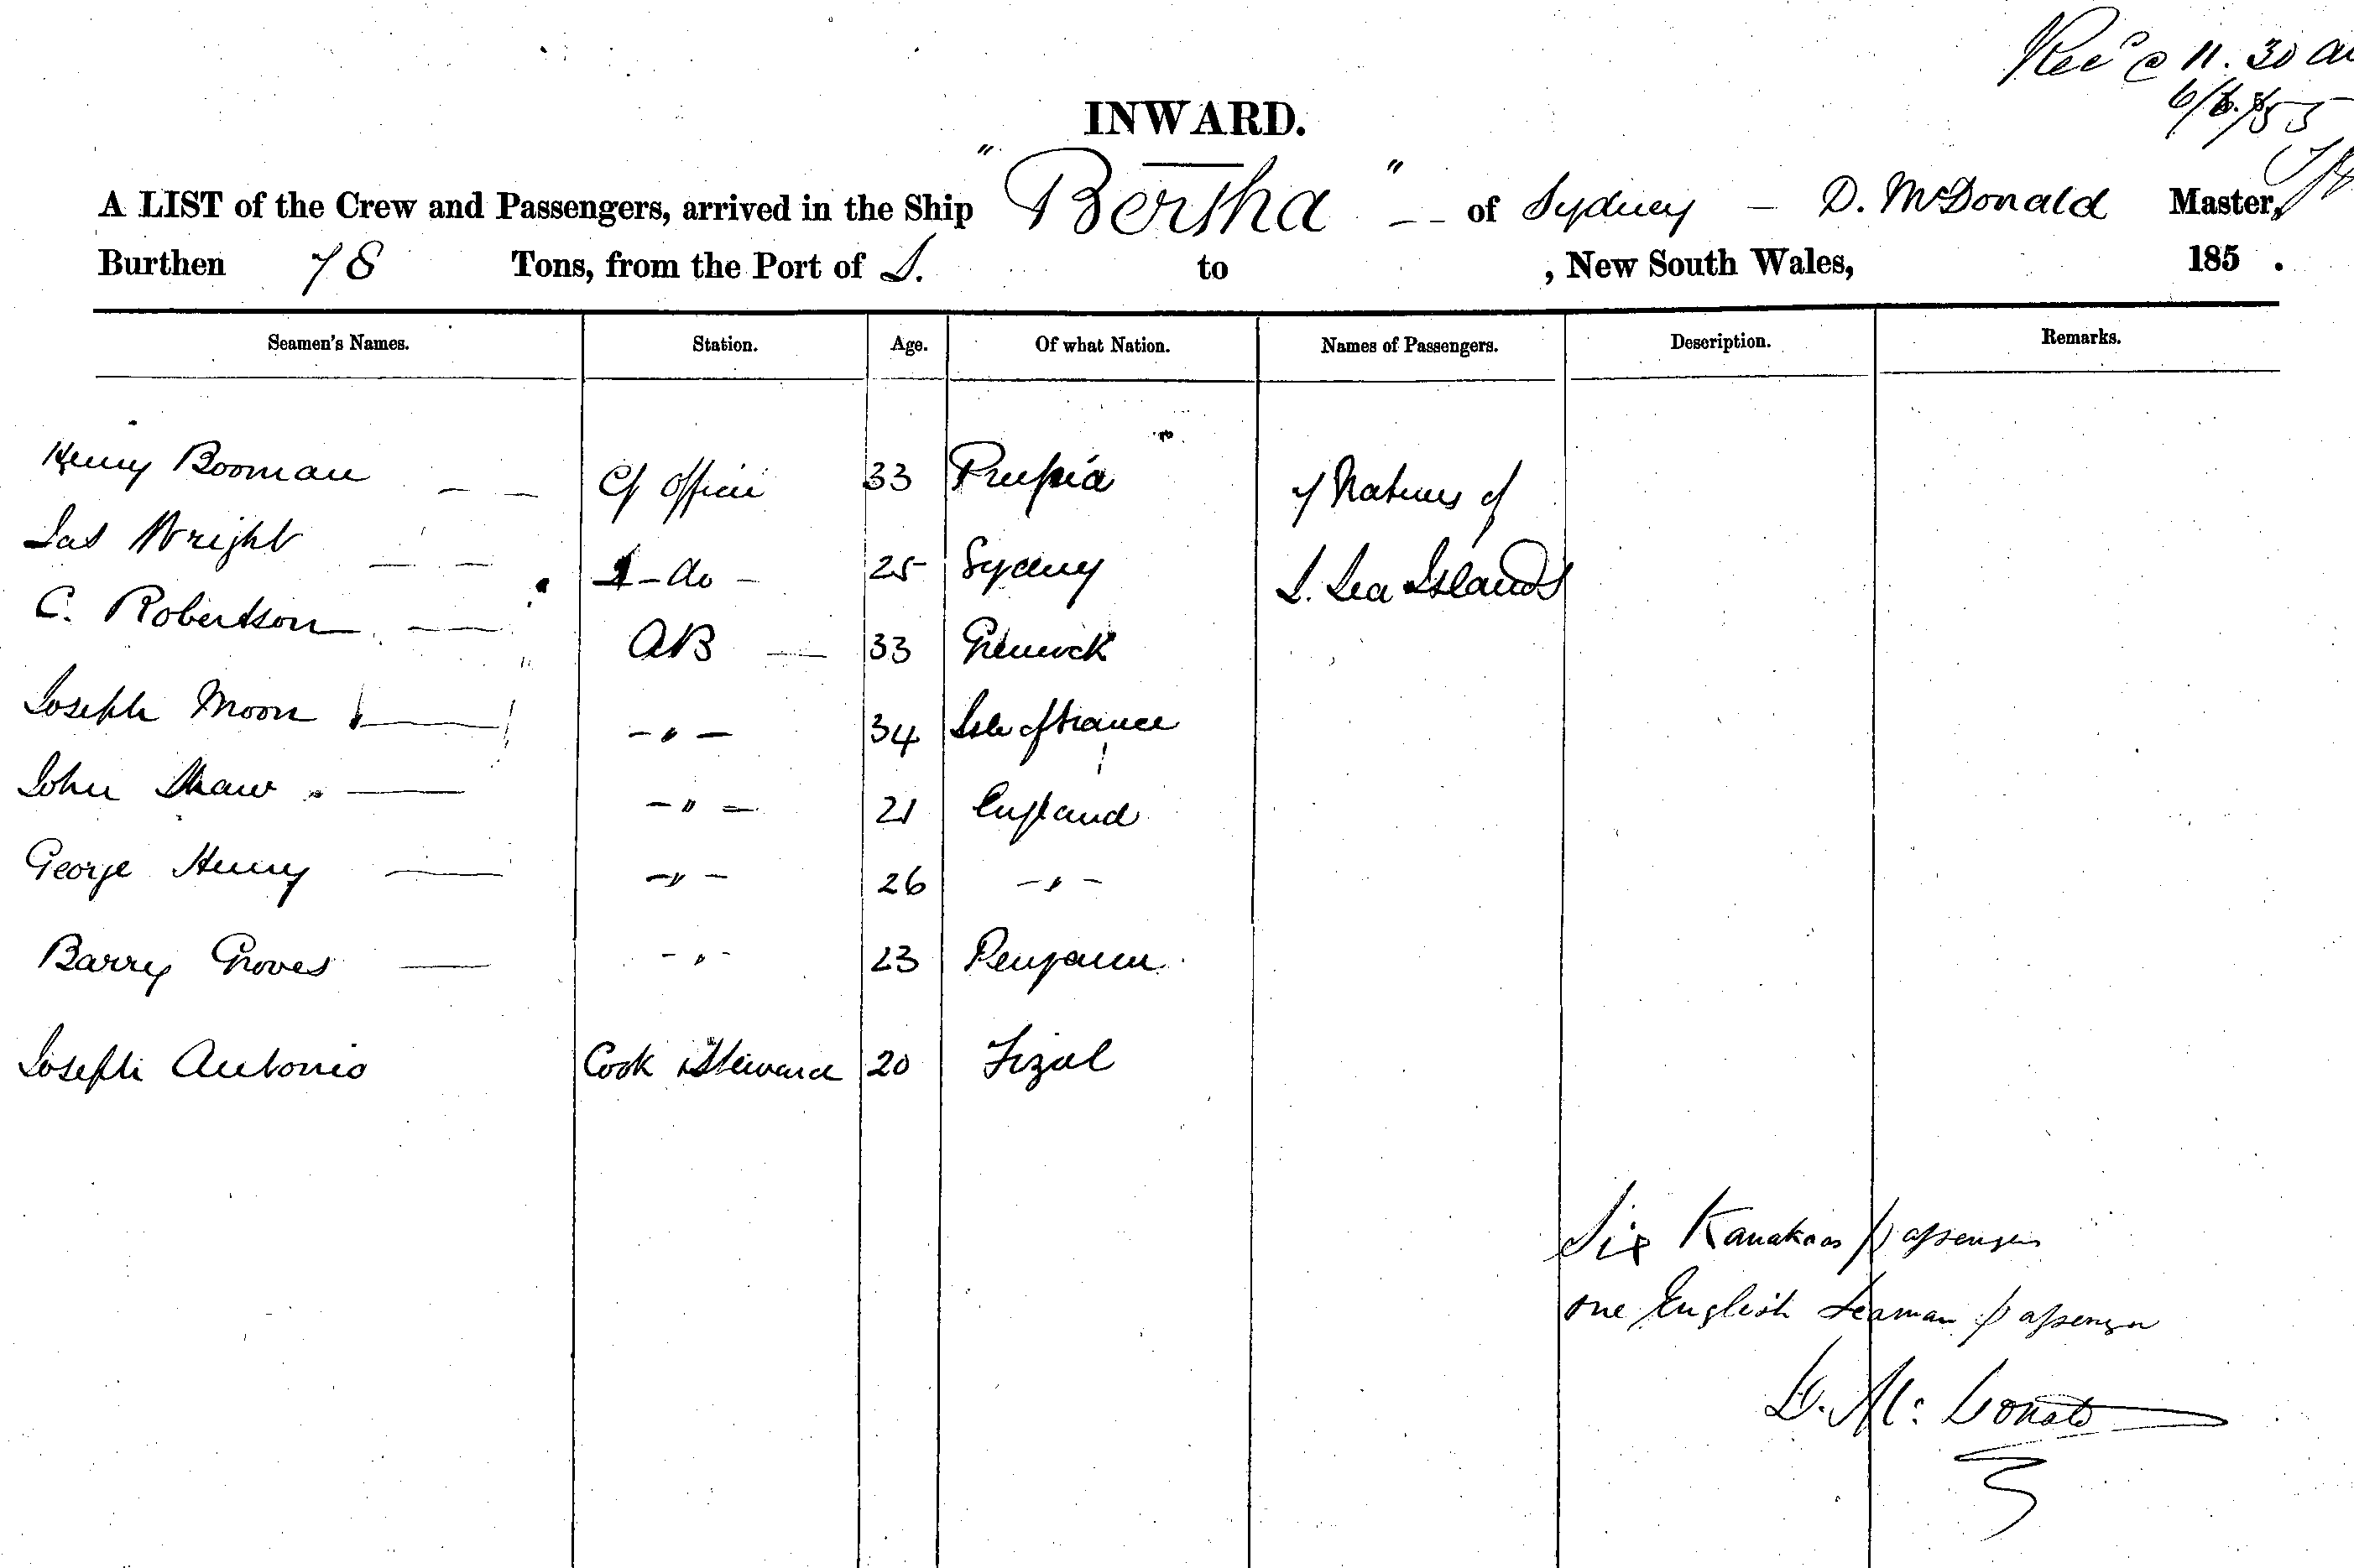 Rec'd @ 11.30 a
6/6/55
INWARD.
A LIST of the Crew and Passengers, arrived in the Ship "Bertha" -- of Sydney - D. McDonald Master,
Burthen 78 Tons, from the Port of S. to , New South Wales, 185 .
Seamen's Names. Station. Age. Of what Nation. Names of Passengers. Description. Remarks.
Henry Booman -- Cf Officer 33 Prussia 7 Natives of
Jas Wright -- -do- 25 Sydney S. Sea Islands
C. Robertson - AB - 33 Greenock
Joseph Moon - -"- 34 Isle of France
John Shaw - -"- 21 England
George Henry - -"- 26 -"-
Barry Groves - -"- 23
Joseph Antonio Cook & Steward 20
Six Kanakas passengers
one English seaman passenger
D. McDonald